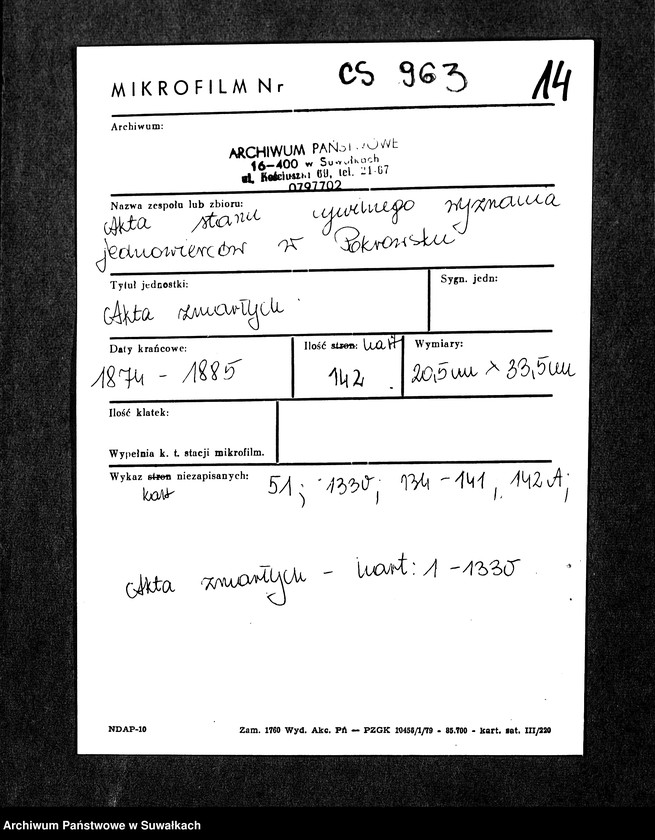 MIKROFILM Nr CS 963 14
Archiwum:
ARCHIWUM PAŃSTWOWE
16-400 w Suwałkach
ul. Kościuszki 69, tel. 21-67
0797702
Nazwa zespołu lub zbioru:
Akta stanu cywilnego wyznania
jednowierców w Pokrowsku
Tytuł jednostki: Sygn. jedn:
Akta zmarłych
Daty krańcowe: Ilość stron: kart Wymiary:
1874 - 1885 142 20,5cm x 33,5cm
Ilość klatek:
Wypełnia k. t. stacji mikrofilm.
Wykaz stron niezapisanych: 51; 133v; 134 - 141, 142A;
kart
Akta zmarłych - kart: 1 - 133v
NDAP-10 Zam. 1760 Wyd. Akc. Pń — PZGK 10456/1/79 - 85.700 - kart. sat. III/220
Archiwum Państwowe w Suwałkach